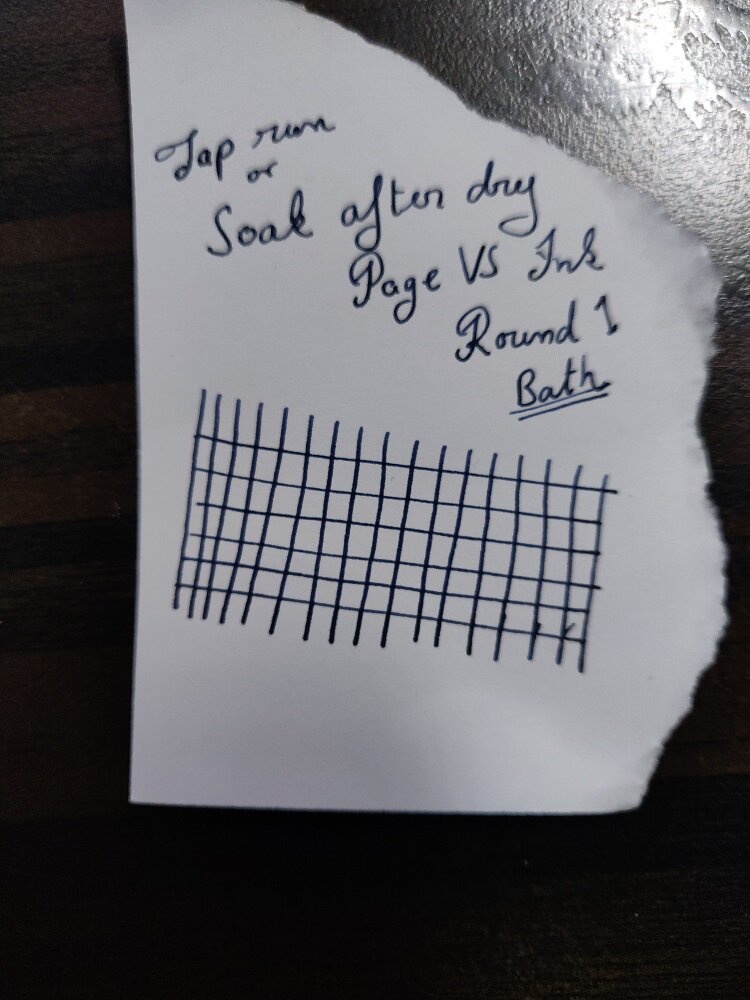 Tap run
or
Soak after dry
Page VS Ink
Round 1
Bath